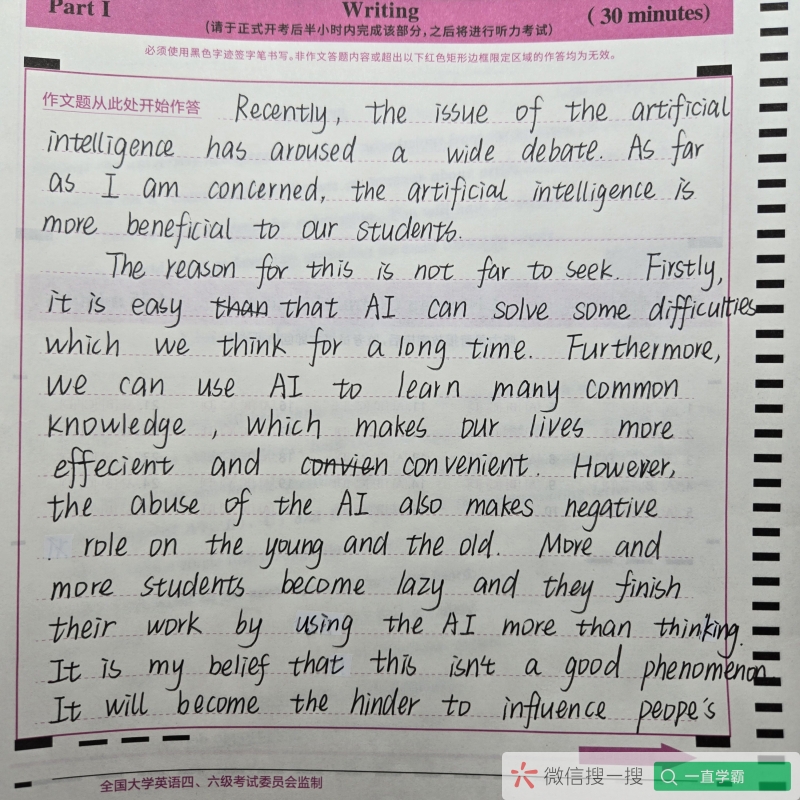 Part I
Writing
( 30 minutes)
(请于正式开考后半小时内完成该部分,之后将进行听力考试)
必须使用黑色字迹签字笔书写。非作文答题内容或超出以下红色矩形边框限定区域的作答均为无效。
作文题从此处开始作答 Recently, the issue of the artificial
intelligence has aroused a wide debate. As far
as I am concerned, the artificial intelligence is
more beneficial to our students.
The reason for this is not far to seek. Firstly,
it is easy than that AI can solve some difficulties
which we think for a long time. Furthermore,
we can use AI to learn many common
knowledge , which makes our lives more
effecient and convien convenient. However,
the abuse of the AI also makes negative
role on the young and the old. More and
more students become lazy and they finish
their work by using the AI more than thinking.
It is my belief that this isn't a good phenomenon.
It will become the hinder to influence peope's
全国大学英语四、六级考试委员会监制
微信搜一搜
一直学霸